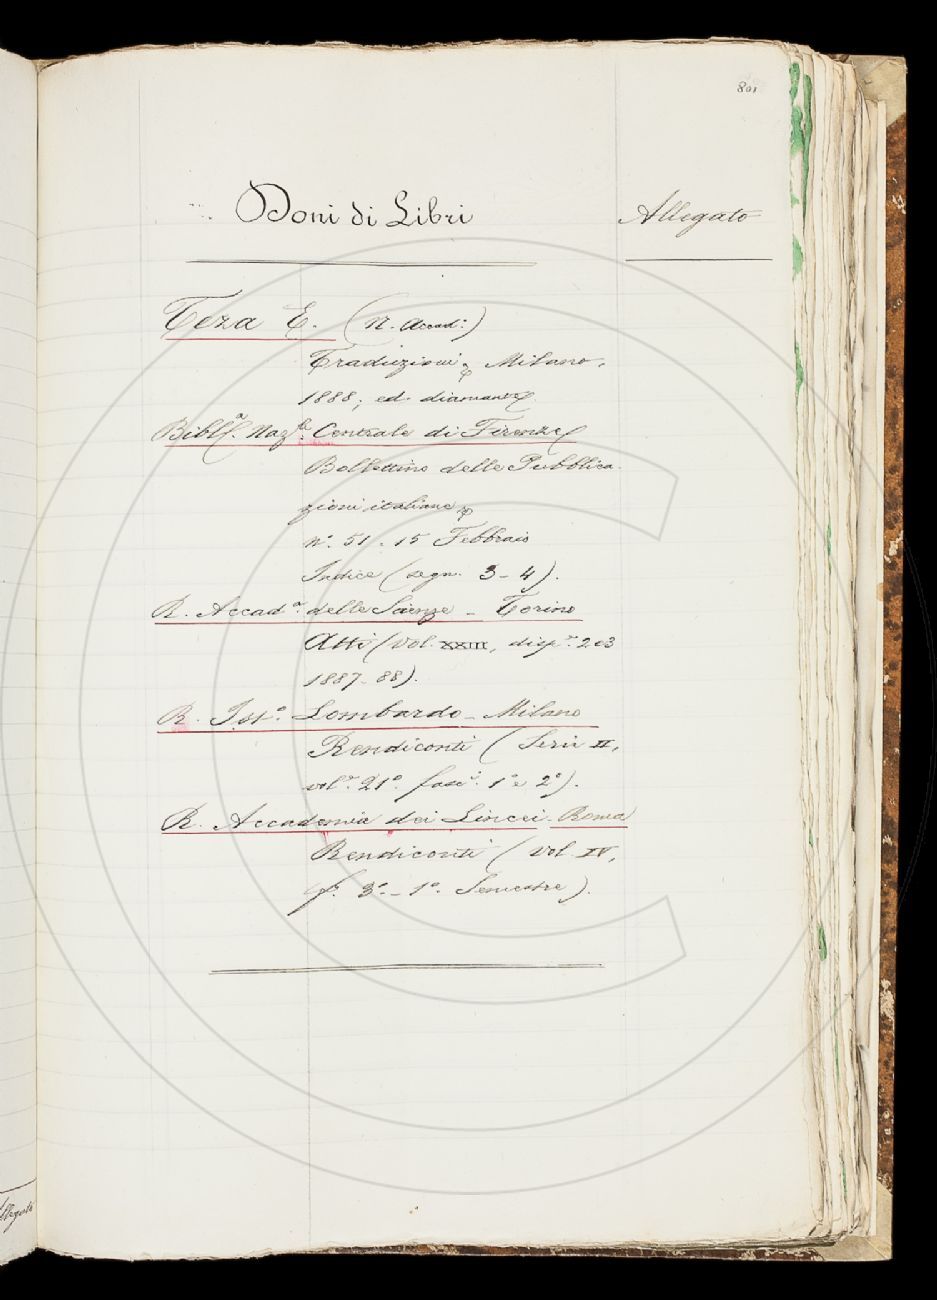 801
Doni di Libri
Allegato
Teza E. (N. Accad:)
Traduzioni, Milano,
1888; ed. diamante
Bibl.ª Naz.le Centrale di Firenze
Bollettino delle Pubblica-
zioni italiane
n.° 51 - 15 Febbraio
Indice (segn. 3-4).
R. Accad.ª delle Scienze - Torino
Atti (Vol. XXIII, disp.e 2 e 3
1887-88).
R. Ist.º Lombardo - Milano
Rendiconti (Serie II,
vol.e 21º fasc.i 1º e 2º).
R. Accademia dei Lincei - Roma
Rendiconti (Vol. IV,
f. 3º - 1º Semestre).